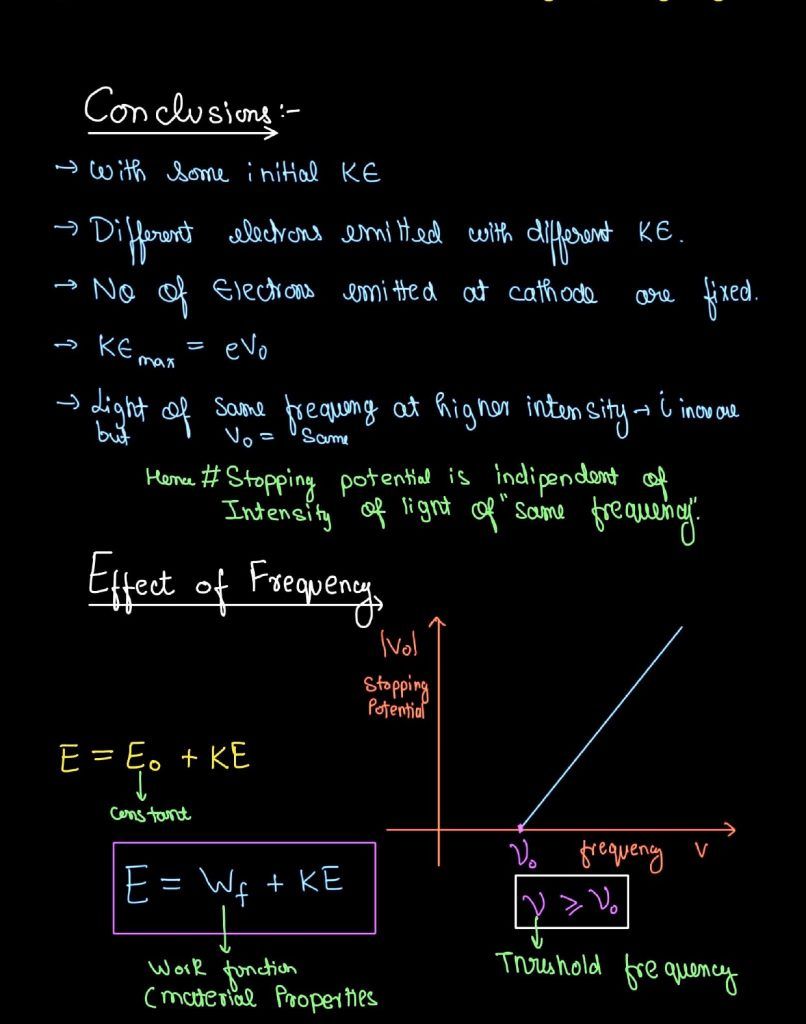 Conclusions:-
→ With some initial KE
→ Different electrons emitted with different KE.
→ No of Electrons emitted at cathode are fixed.
→ KEmax = eV₀
→ Light of same frequency at higher intensity → i increase
but V₀ = same
Hence # Stopping potential is indipendent of
Intensity of light of "same frequency".
Effect of Frequency
|V₀|
Stopping
Potential
E = E₀ + KE
constant
ν₀ frequency ν
E = Wf + KE
ν ≥ ν₀
Work function
(material Properties
Threshold frequency